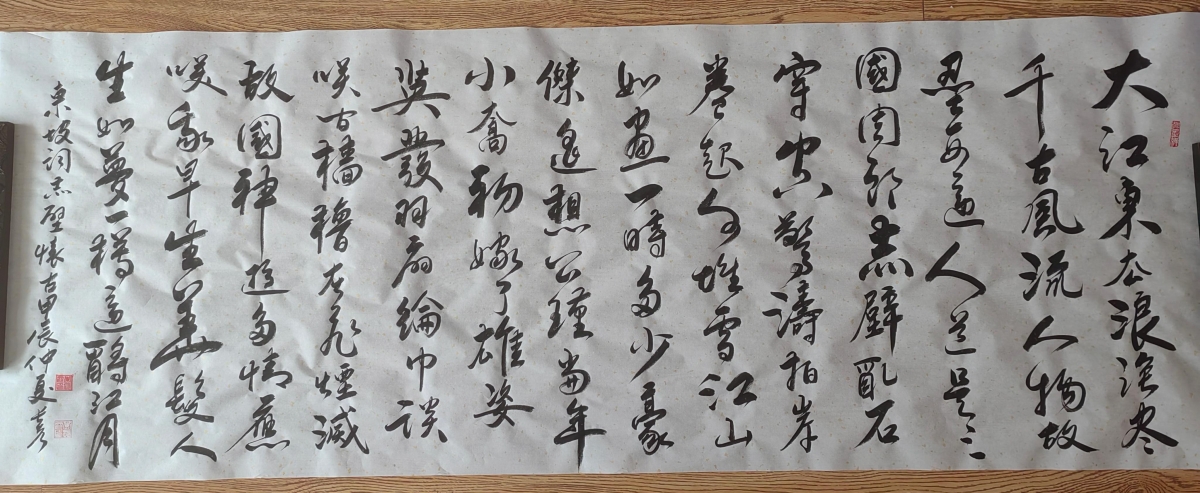 大江東去浪淘尽
千古風流人物故
壘西邊人道是三
國周郎赤壁亂石
穿空驚濤拍岸
卷起千堆雪江山
如畫一時多少豪
傑遙想公瑾當年
小喬初嫁了雄姿
英發羽扇綸巾談
咲间檣櫓灰飛煙滅
故國神遊多情應
咲我早生華髮人
生如夢一樽還酹江月
東坡詞赤壁懷古甲辰仲夏